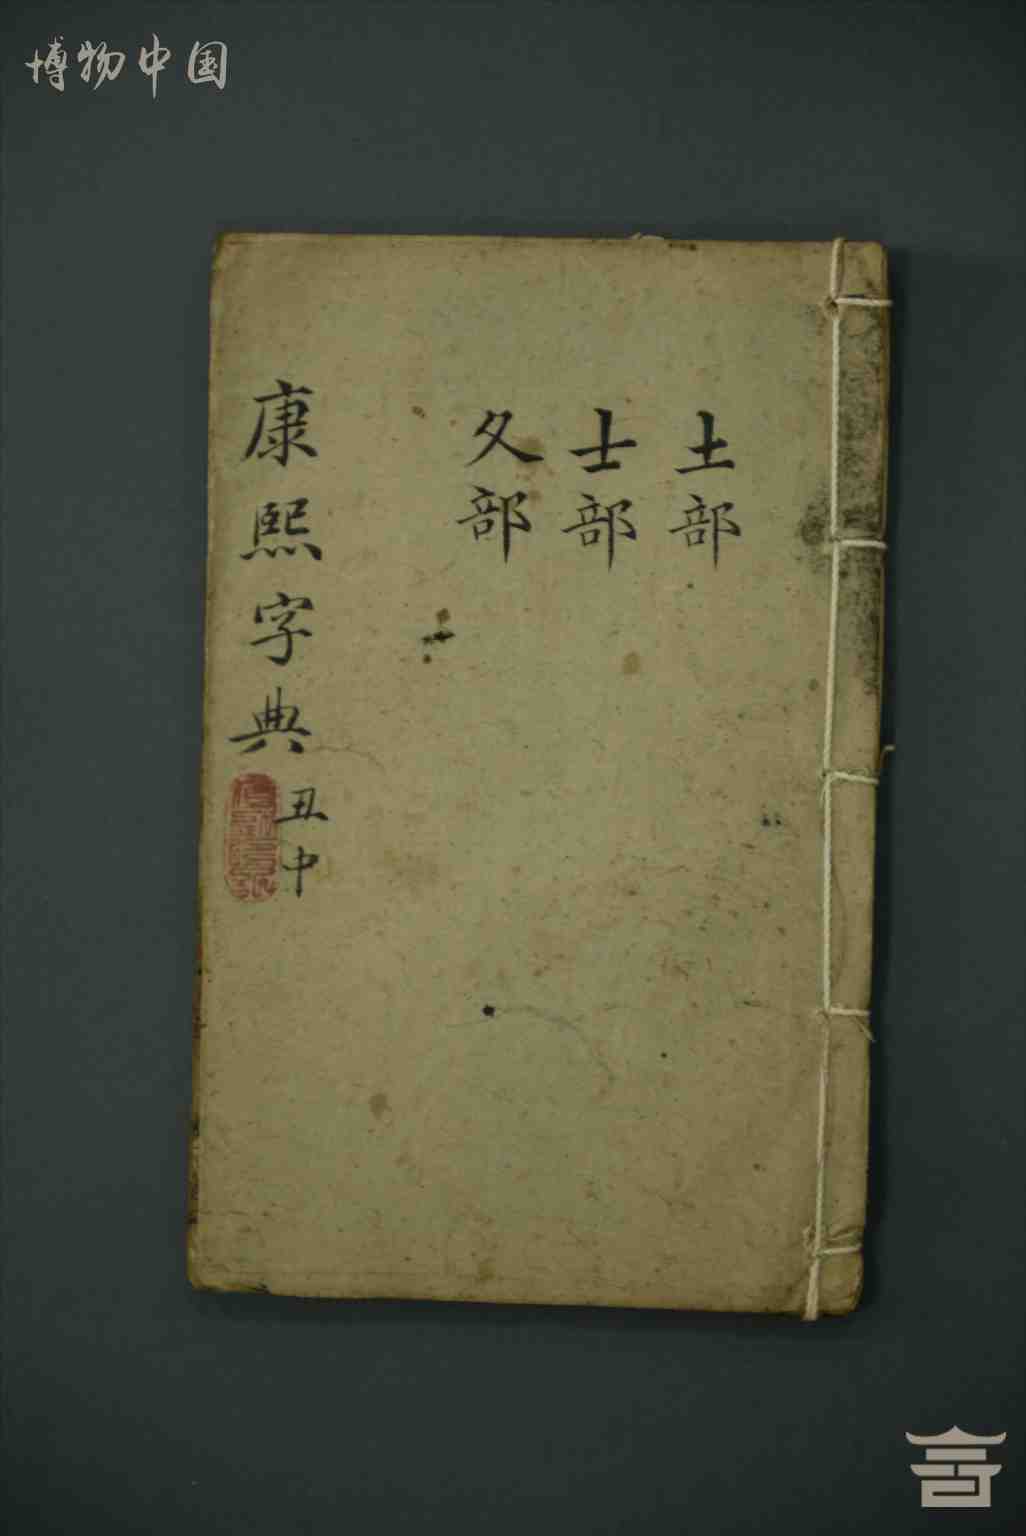 博物中国
土部
士部
夂部
康熙字典
丑中